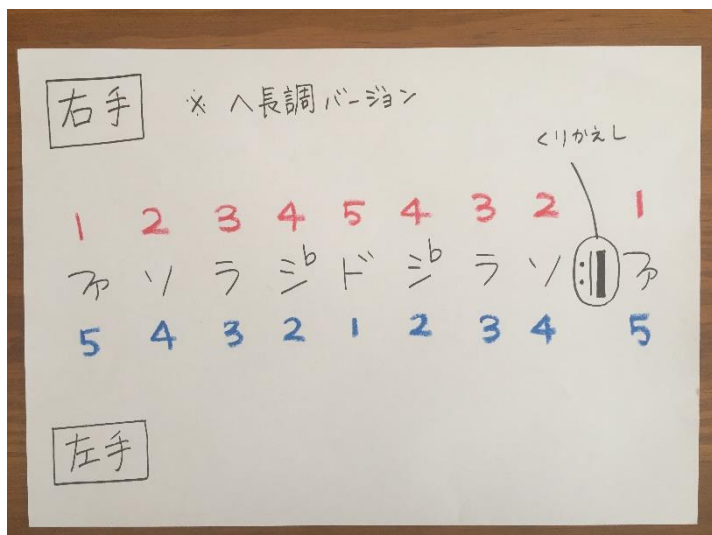 右手 ※ ヘ長調バージョン
くりかえし
1 2 3 4 5 4 3 2 1
ファ ソ ラ シ♭ ド シ♭ ラ ソ 𝄇 ファ
5 4 3 2 1 2 3 4 5
左手